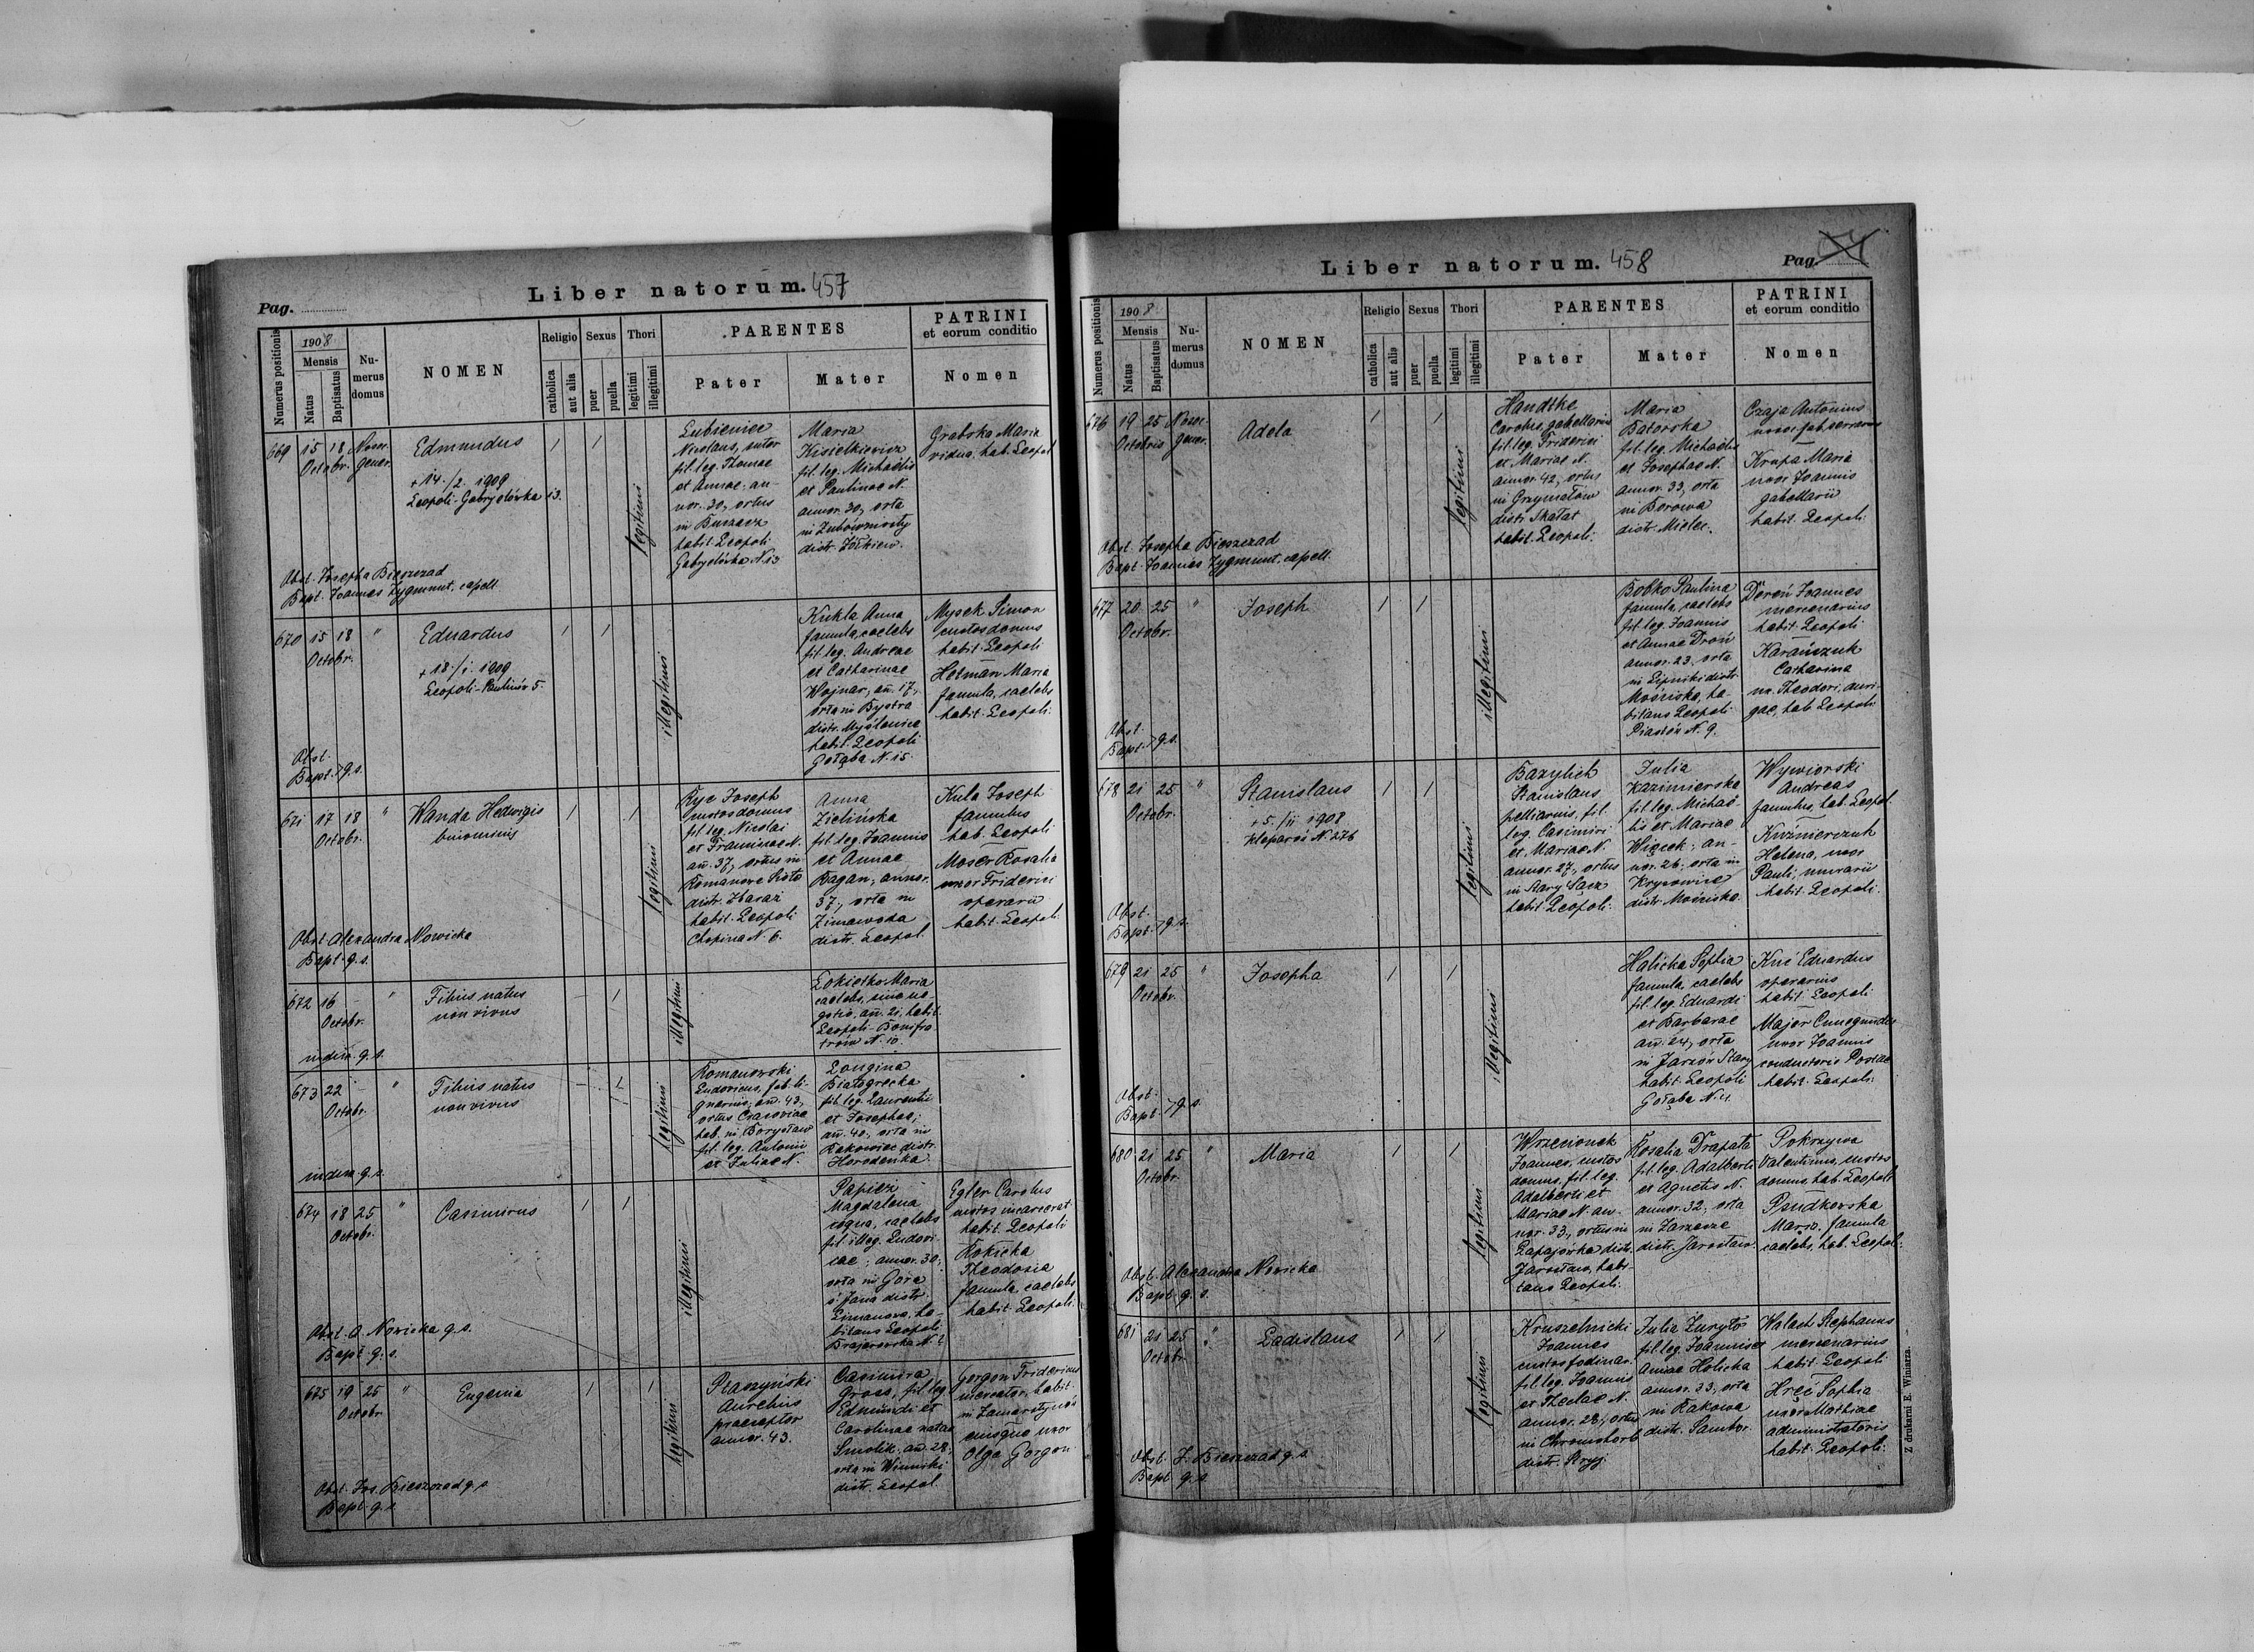 Pag.
Liber natorum. 457
Numerus positionis
1908
Mensis
Natus
Baptisatus
Nu-
merus
domus
NOMEN
Religio
catholica
aut alia
Sexus
puer
puella
Thori
legitimi
illegitimi
PARENTES
Pater
Mater
PATRINI
et eorum conditio
Nomen
669 15 18 Nosoc.
Octobr. gener.
Edmundus
+ 14./2. 1909
Leopoli-Gabryelówka 13.
legitimi
Lubieniec
Nicolaus, sutor
fil. leg. Thomae
et Annae, an-
nor. 30, ortus
in Buszacz
habit. Leopoli
Gabryelówka N. 13
Maria
Kisielkiewicz
fil. leg. Michaelis
et Paulinae N.
annor. 30, orta
in Zubowmosty
distr. Żółkiew.
Grabska Maria
vidua, hab. Leopol.
Obst. Josepha Bieszczad
Bapt. Joannes Zygmunt, capell.
670 15 18 "
Octobr.
Eduardus
+ 18./1. 1909
Leopoli-Paulinów 5.
illegitimi
Kukla Anna
famula, caelebs
fil. leg. Andreae
et Catharinae
Wojnar, an. 17,
orta in Bystra
distr. Myślenice
habit. Leopoli
Gołąba N. 15.
Mysek Simon
custos domus
habit. Leopoli
Hetman Maria
famula, caelebs
habit. Leopoli.
Obst.
Bapt. > q. s.
671 17 18 "
Octobr.
Wanda Hedwigis
binominis
legitimi
Ryc Joseph
custos domus
fil. leg. Nicolai
et Franciscae N.
an. 37, ortus in
Romanowe Sioło
distr. Zbaraż
habit. Leopoli
Chopina N. 6.
Anna
Zielińska
fil. leg. Joannis
et Annae
Kagan, annor.
37, orta in
Zimnawoda
distr. Leopol.
Kula Joseph
famulus
hab. Leopoli
Moser Rosalia
uxor Friderici
operarii
habit. Leopoli
Obst. Alexandra Nowicka
Bapt. q. s.
672 16 - "
Octobr.
Filius natus
non vivus
illegitimi
Łokietko Maria
caelebs, sine ne-
gotio, an. 21, habit.
Leopoli-Bonifra-
trów N. 10.
indem q. s.
673 22 - "
Octobr.
Filius natus
non vivus
legitimi
Romanowski
Ludovicus, fab. li-
gnarius, an. 43,
hab. in Borysław
fil. leg. Antonii
et Juliae N.
Longina
Białogrecka
fil. leg. Laurentii
et Josephae,
an. 40, orta in
Rakowiec distr.
Horodenka.
indem q. s.
674 18 25 "
Octobr.
Casimirus
illegitimi
Papież
Magdalena
coqua, caelebs
fil. illeg. Ludovi-
cae, annor. 30,
orta in Góra
ś. Jana distr.
Limanowa, ha-
bitans Leopoli
Brajerowska N. 2
Egler Carolus
custos incarcerat.
habit. Leopoli
Rokicka
Theodosia
famula, caelebs
habit. Leopoli.
Obst. A. Nowicka q. s.
Bapt. q. s.
675 19 25 "
Octobr.
Eugenia
legitimi
Ptaszyński
Aurelius
praeceptor
annor. 43.
Casimira
Gross, fil. leg.
Edmundi et
Carolinae natae
Smolik, an. 28.
orta in Winniki
distr. Leopol.
Gorgon Fridericus
mercator, habit.
in Zamarstynów
eiusque uxor
Olga Gorgon
Obst. Jos. Bieszczad q. s.
Bapt. q. s.
Liber natorum. 458
Pag.
Numerus positionis
1908
Mensis
Natus
Baptisatus
Nu-
merus
domus
NOMEN
Religio
catholica
aut alia
Sexus
puer
puella
Thori
legitimi
illegitimi
PARENTES
Pater
Mater
PATRINI
et eorum conditio
Nomen
676 19 25 Nosoc.
Octobris gener.
Adela
legitimi
Handtke
Carolus, gabellarius
fil. leg. Friderici
et Mariae N.
annor. 42, ortus
in Grzymałów
distr. Skałat
habit. Leopoli.
Maria
Batorska
fil. leg. Michaelis
et Josephae N.
annor. 33, orta
in Borowa
distr. Mielec.
Czaja Antonius
Krupa Maria
uxor Joannis
gabellarii
habit. Leopoli.
Obst. Josepha Bieszczad
Bapt. Joannes Zygmunt, capell.
677 20 25 "
Octobr.
Joseph
illegitimi
Bobko Paulina
famula, caelebs
fil. leg. Joannis
et Annae Droń
annor. 23, orta
in Lipniki distr.
Mościska, ha-
bitans Leopoli
Piastów N. 9.
Doroń Joannes
mercenarius
habit. Leopoli
Karańczuk
Catharina
ux. Theodori, auri-
gae, hab. Leopoli
Obst.
Bapt. > q. s.
678 21 25 "
Octobr.
Stanislaus
+ 5./11 1908
Kleparów N. 276
legitimi
Bazylich
Stanislaus,
pelliarius, fil.
leg. Casimiri
et Mariae N.
annor. 27, ortus
in Stary Sącz
habit. Leopoli.
Julia
Kazimierska
fil. leg. Michaë-
lis et Mariae
Więcek, an-
nor. 26, orta in
Krysowice
distr. Mościska.
Wywiorski
Andreas
famulus, hab. Leopol.
Kuźnierczuk
Helena, uxor
Pauli, murarii
habit. Leopoli.
Obst.
Bapt. > q. s.
679 21 25 "
Octobr.
Josepha
illegitimi
Halicka Sophia
famula, caelebs
fil. leg. Eduardi
et Barbarae
an. 24, orta
in Jarzów Stary
habit. Leopoli
Gołąba N. 11.
Knš Eduardus
operarius
habit. Leopoli
Major Cunegundis
uxor Joannis
conductoris Postae
habit. Leopoli.
Obst.
Bapt. > q. s.
680 21 25 "
Octobr.
Maria
legitimi
Wrzecionek
Joannes, custos
domus, fil. leg.
Adalberti et
Mariae N. an-
nor. 33, ortus in
Łapajówka distr.
Jarosław, habi-
tans Leopoli.
Rosalia Drapała
fil. leg. Adalberti
et Agnetis N.
annor. 32, orta
in Zarzecze
distr. Jarosław.
Pokrzywa
Valentinus, custos
domus, hab. Leopoli
Maria, famula
caelebs, hab. Leopoli.
Obst. Alexandra Nowicka
Bapt. q. s.
681 21 25 "
Octobr.
Ladislaus
legitimi
Kruszelnicki
Joannes
custos fodinar.
fil. leg. Joannis
et Theclae N.
annor. 28, ortus
in Chromohorb
distr. Stryj.
Julia Żurytós
fil. leg. Joannis et
Annae Holicka
annor. 23, orta
in Rakowa
distr. Sambor.
Walach Stephanus
mercenarius
habit. Leopoli
Hręć Sophia
uxor Mathiae
administratoris
habit. Leopoli.
Obst. J. Bieszczad q. s.
Bapt. q. s.
Z drukarni E. Winiarza.